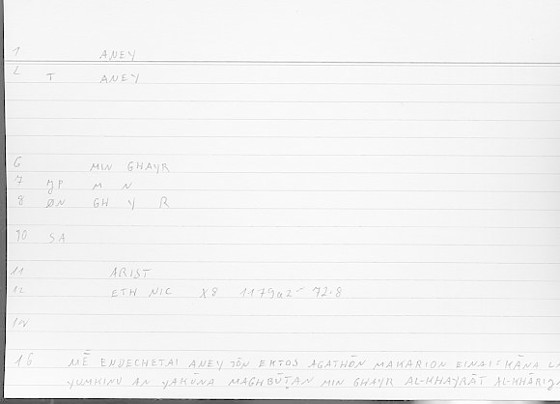 1 ANEY
2 T ANEY
6 MIN GHAYR
7 YP M N
8 ØN GH Y R
10 SA
11 ARIST
12 ETH NIC X8 1179a2- 72.8
16 MĒ ENDECHETAI ANEY TŌN EKTOS AGATHŌN MAKARION EINAI: KĀNA
YUMKINU AN YAKŪNA MAGHBŪṬAN MIN GHAYR AL-KHAYRĀT